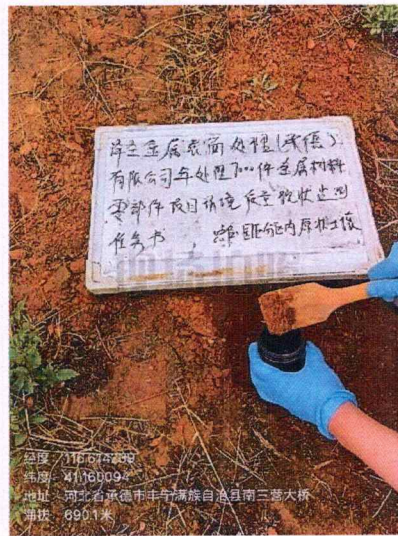 泽兰金属表面处理(承德)
有限公司年处理7000件金属材料
零部件项目环境质量现状监测
任务书 区内原状土壤
经度 116.674299
纬度 41.160094
地址 河北省承德市丰宁满族自治县南三营大桥
海拔 690.1米